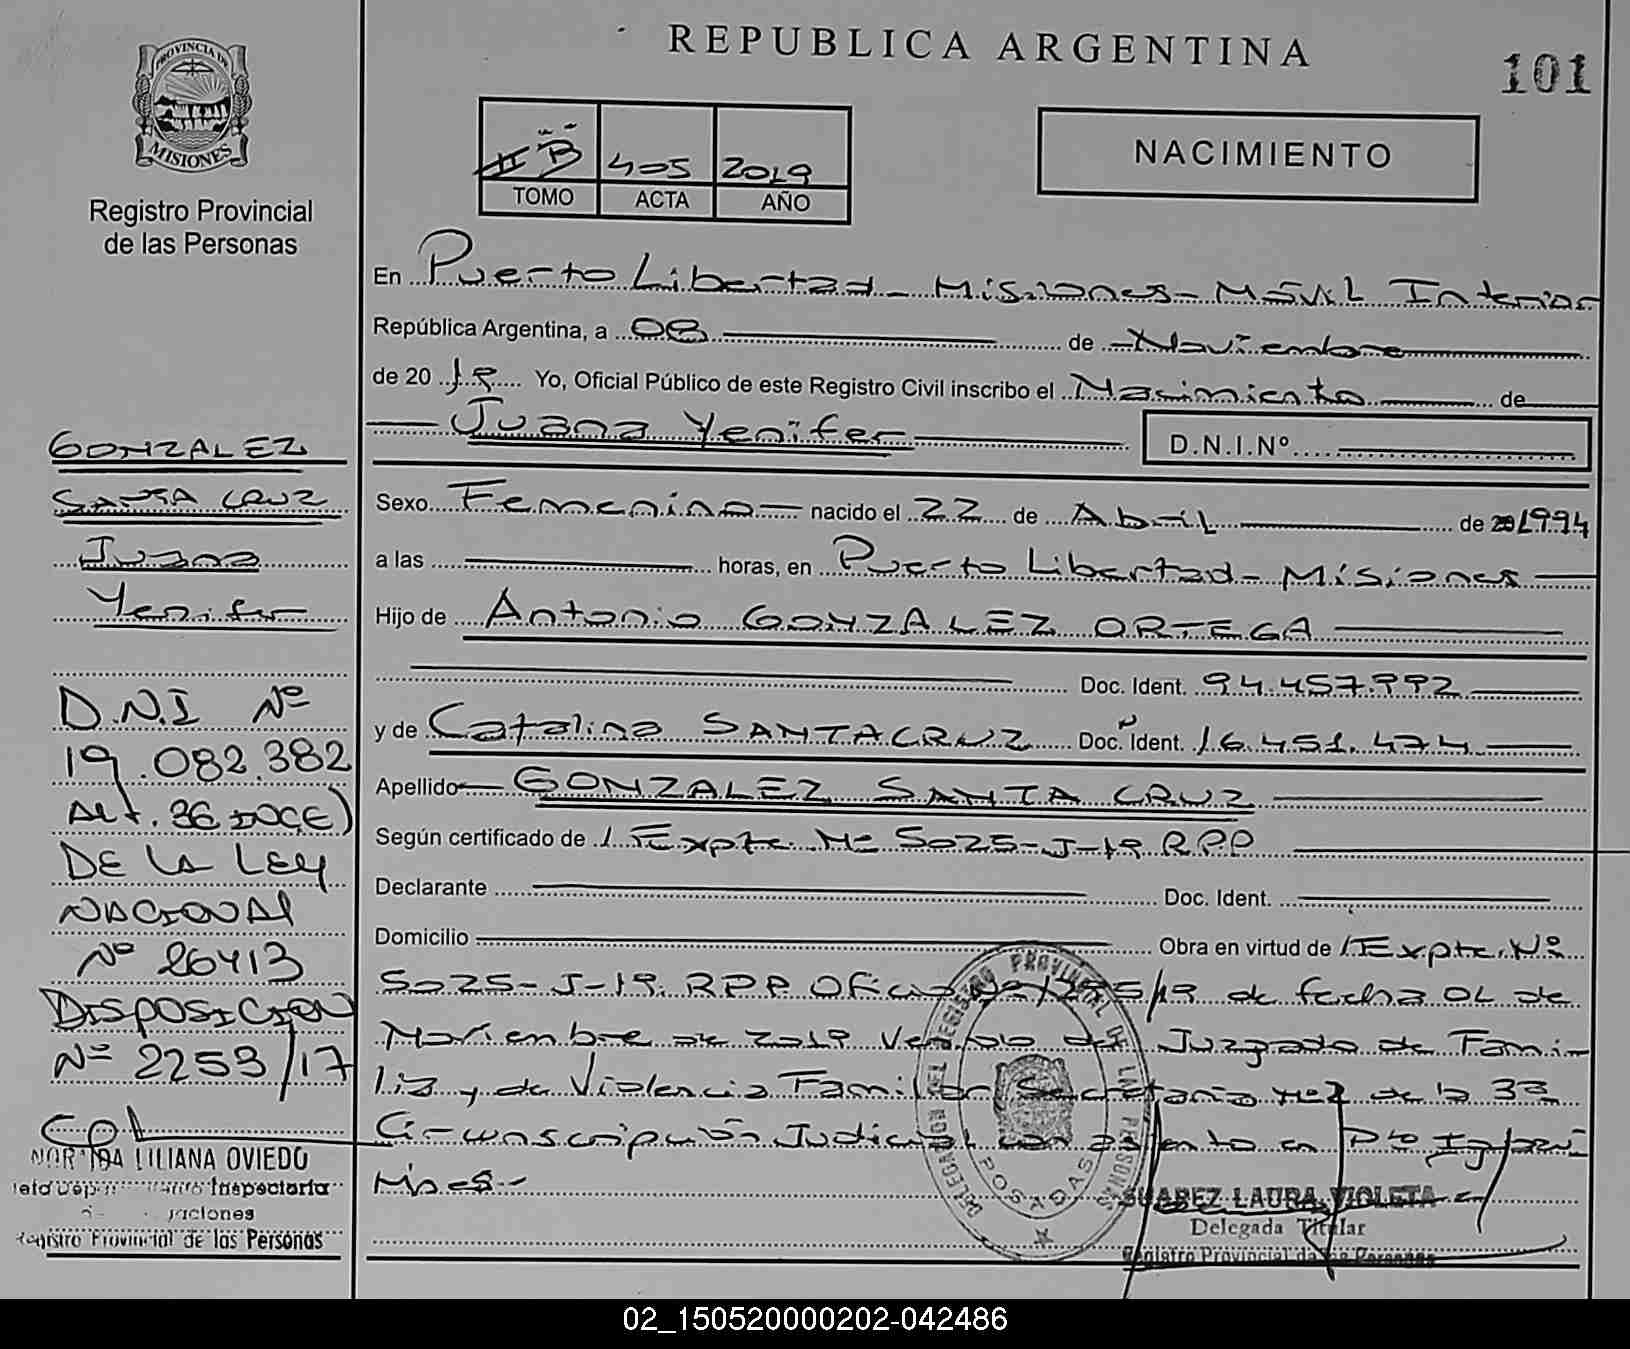 REPUBLICA ARGENTINA
101
PROVINCIA DE
MISIONES
Registro Provincial
de las Personas
II B 405 2019
TOMO ACTA AÑO
NACIMIENTO
En Puerto Libertad - Misiones - Móvil Interior
República Argentina, a 08 de Noviembre
de 2019 Yo, Oficial Público de este Registro Civil inscribo el Nacimiento de
Juana Yenifer D.N.I.Nº
Sexo Femenino nacido el 22 de Abril de 20 1994
a las horas, en Puerto Libertad - Misiones
Hijo de Antonio GONZALEZ ORTEGA
Doc. Ident. 94.457.992
y de Catalina SANTACRUZ Doc. Ident. 16.451.474
Apellido GONZALEZ SANTA CRUZ
Según certificado de / Expte. Nº 5025-J-19 RPP
Declarante Doc. Ident.
Domicilio Obra en virtud de / Expte. Nº
5025-J-19. RPP Oficio Nº 1295/19 de fecha 01 de
Noviembre de 2019 Venido del Juzgado de Fami-
lia y de Violencia Familiar Secretaría Nº2 de la 3ª
Circunscripción Judicial con asiento en Pto Iguazú
Mnes-
DELEGACION DEL REGISTRO PROVINCIAL DE LAS PERSONAS
POSADAS
SUAREZ LAURA VIOLETA
Delegada Titular
Registro Provincial de las Personas
GONZALEZ
SANTA CRUZ
Juana
Yenifer
D.N.I Nº
19.082.382
Art. 36 INC E)
DE LA LEY
NACIONAL
Nº 26413
DISPOSICION
Nº 2253/17
LILIANA OVIEDO
Inspectoria
Registro Provincial de las Personas
02_150520000202-042486